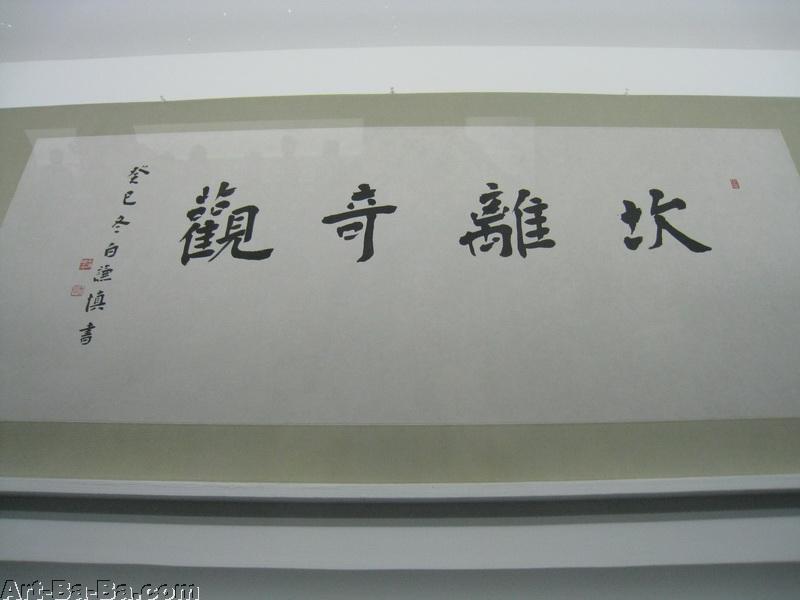 坎離奇觀
癸巳冬白謙慎書
Art-Ba-Ba.com